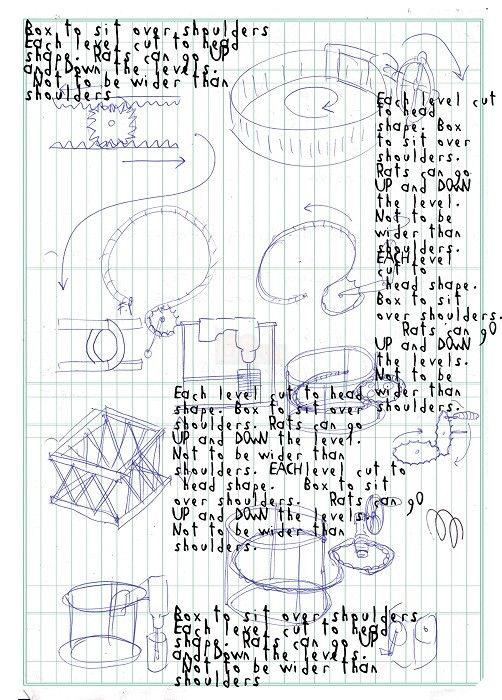 Box to sit over shoulders
Each level cut to head
shape. Rats can go UP
and Down the levels.
Not to be wider than
shoulders
Each level cut
to head
shape. Box
to sit over
shoulders.
Rats can go
UP and DOWN
the level.
Not to be
wider than
shoulders.
EACH level
cut to
head shape.
Box to sit
over shoulders.
Rats can go
UP and DOWN
the levels.
Not to be
wider than
shoulders.
Each level cut to head
shape. Box to sit over
shoulders. Rats can go
UP and DOWN the level.
Not to be wider than
shoulders. EACH level cut to
head shape. Box to sit
over shoulders. Rats can go
UP and DOWN the levels.
Not to be wider than
shoulders.
Box to sit over shoulders
Each level cut to head
shape. Rats can go UP
and Down the levels.
Not to be wider than
shoulders